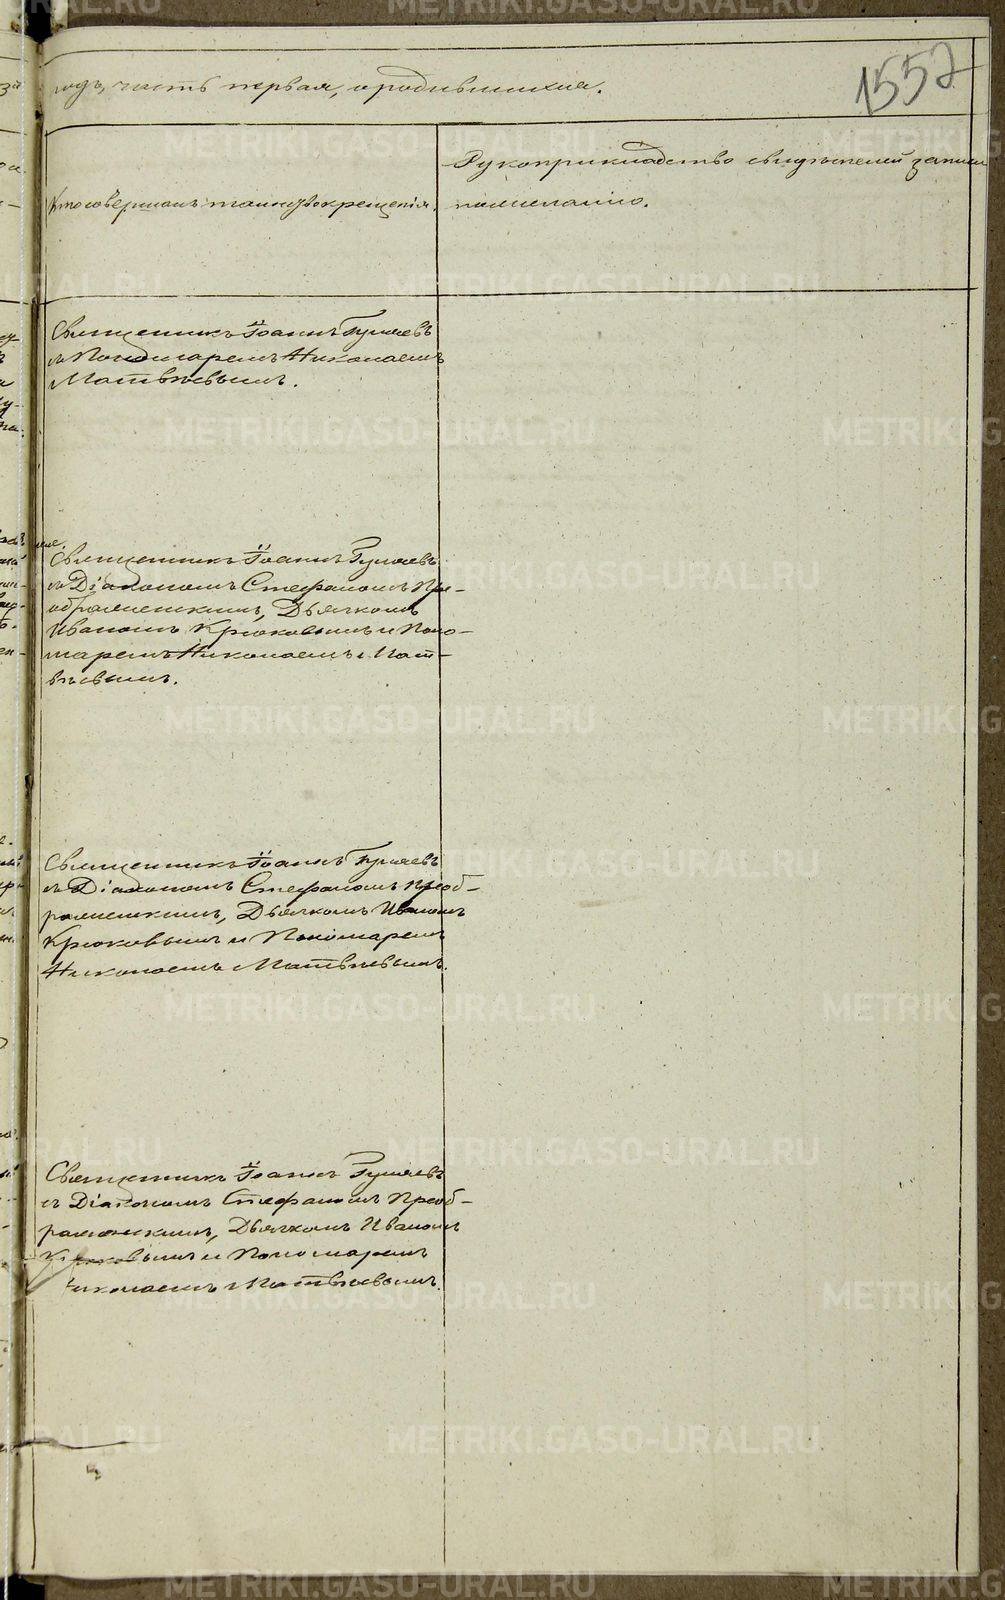 годъ, часть первая, о родившихся.
1552
Кто совершалъ таинство крещенія.
Рукоприкладство свидѣтелей записи
по желанію.
Священникъ Іоаннъ Гуляевъ
съ Пономаремъ Николаемъ
Матвѣевымъ.
Священникъ Іоаннъ Гуляевъ
съ Діакономъ Стефаномъ Пре-
ображенскимъ, Дьячкомъ
Иваномъ Крюковымъ и Поно-
маремъ Николаемъ Мат-
вѣевымъ.
Священникъ Іоаннъ Гуляевъ
съ Діакономъ Стефаномъ Преоб-
раженскимъ, Дьячкомъ Иваномъ
Крюковымъ и Пономаремъ
Николаемъ Матвѣевымъ.
Священникъ Іоаннъ Гуляевъ
съ Діакономъ Стефаномъ Преоб-
раженскимъ, Дьячкомъ Иваномъ
Крюковымъ и Пономаремъ
Николаемъ Матвѣевымъ.
METRIKI.GASO-URAL.RU